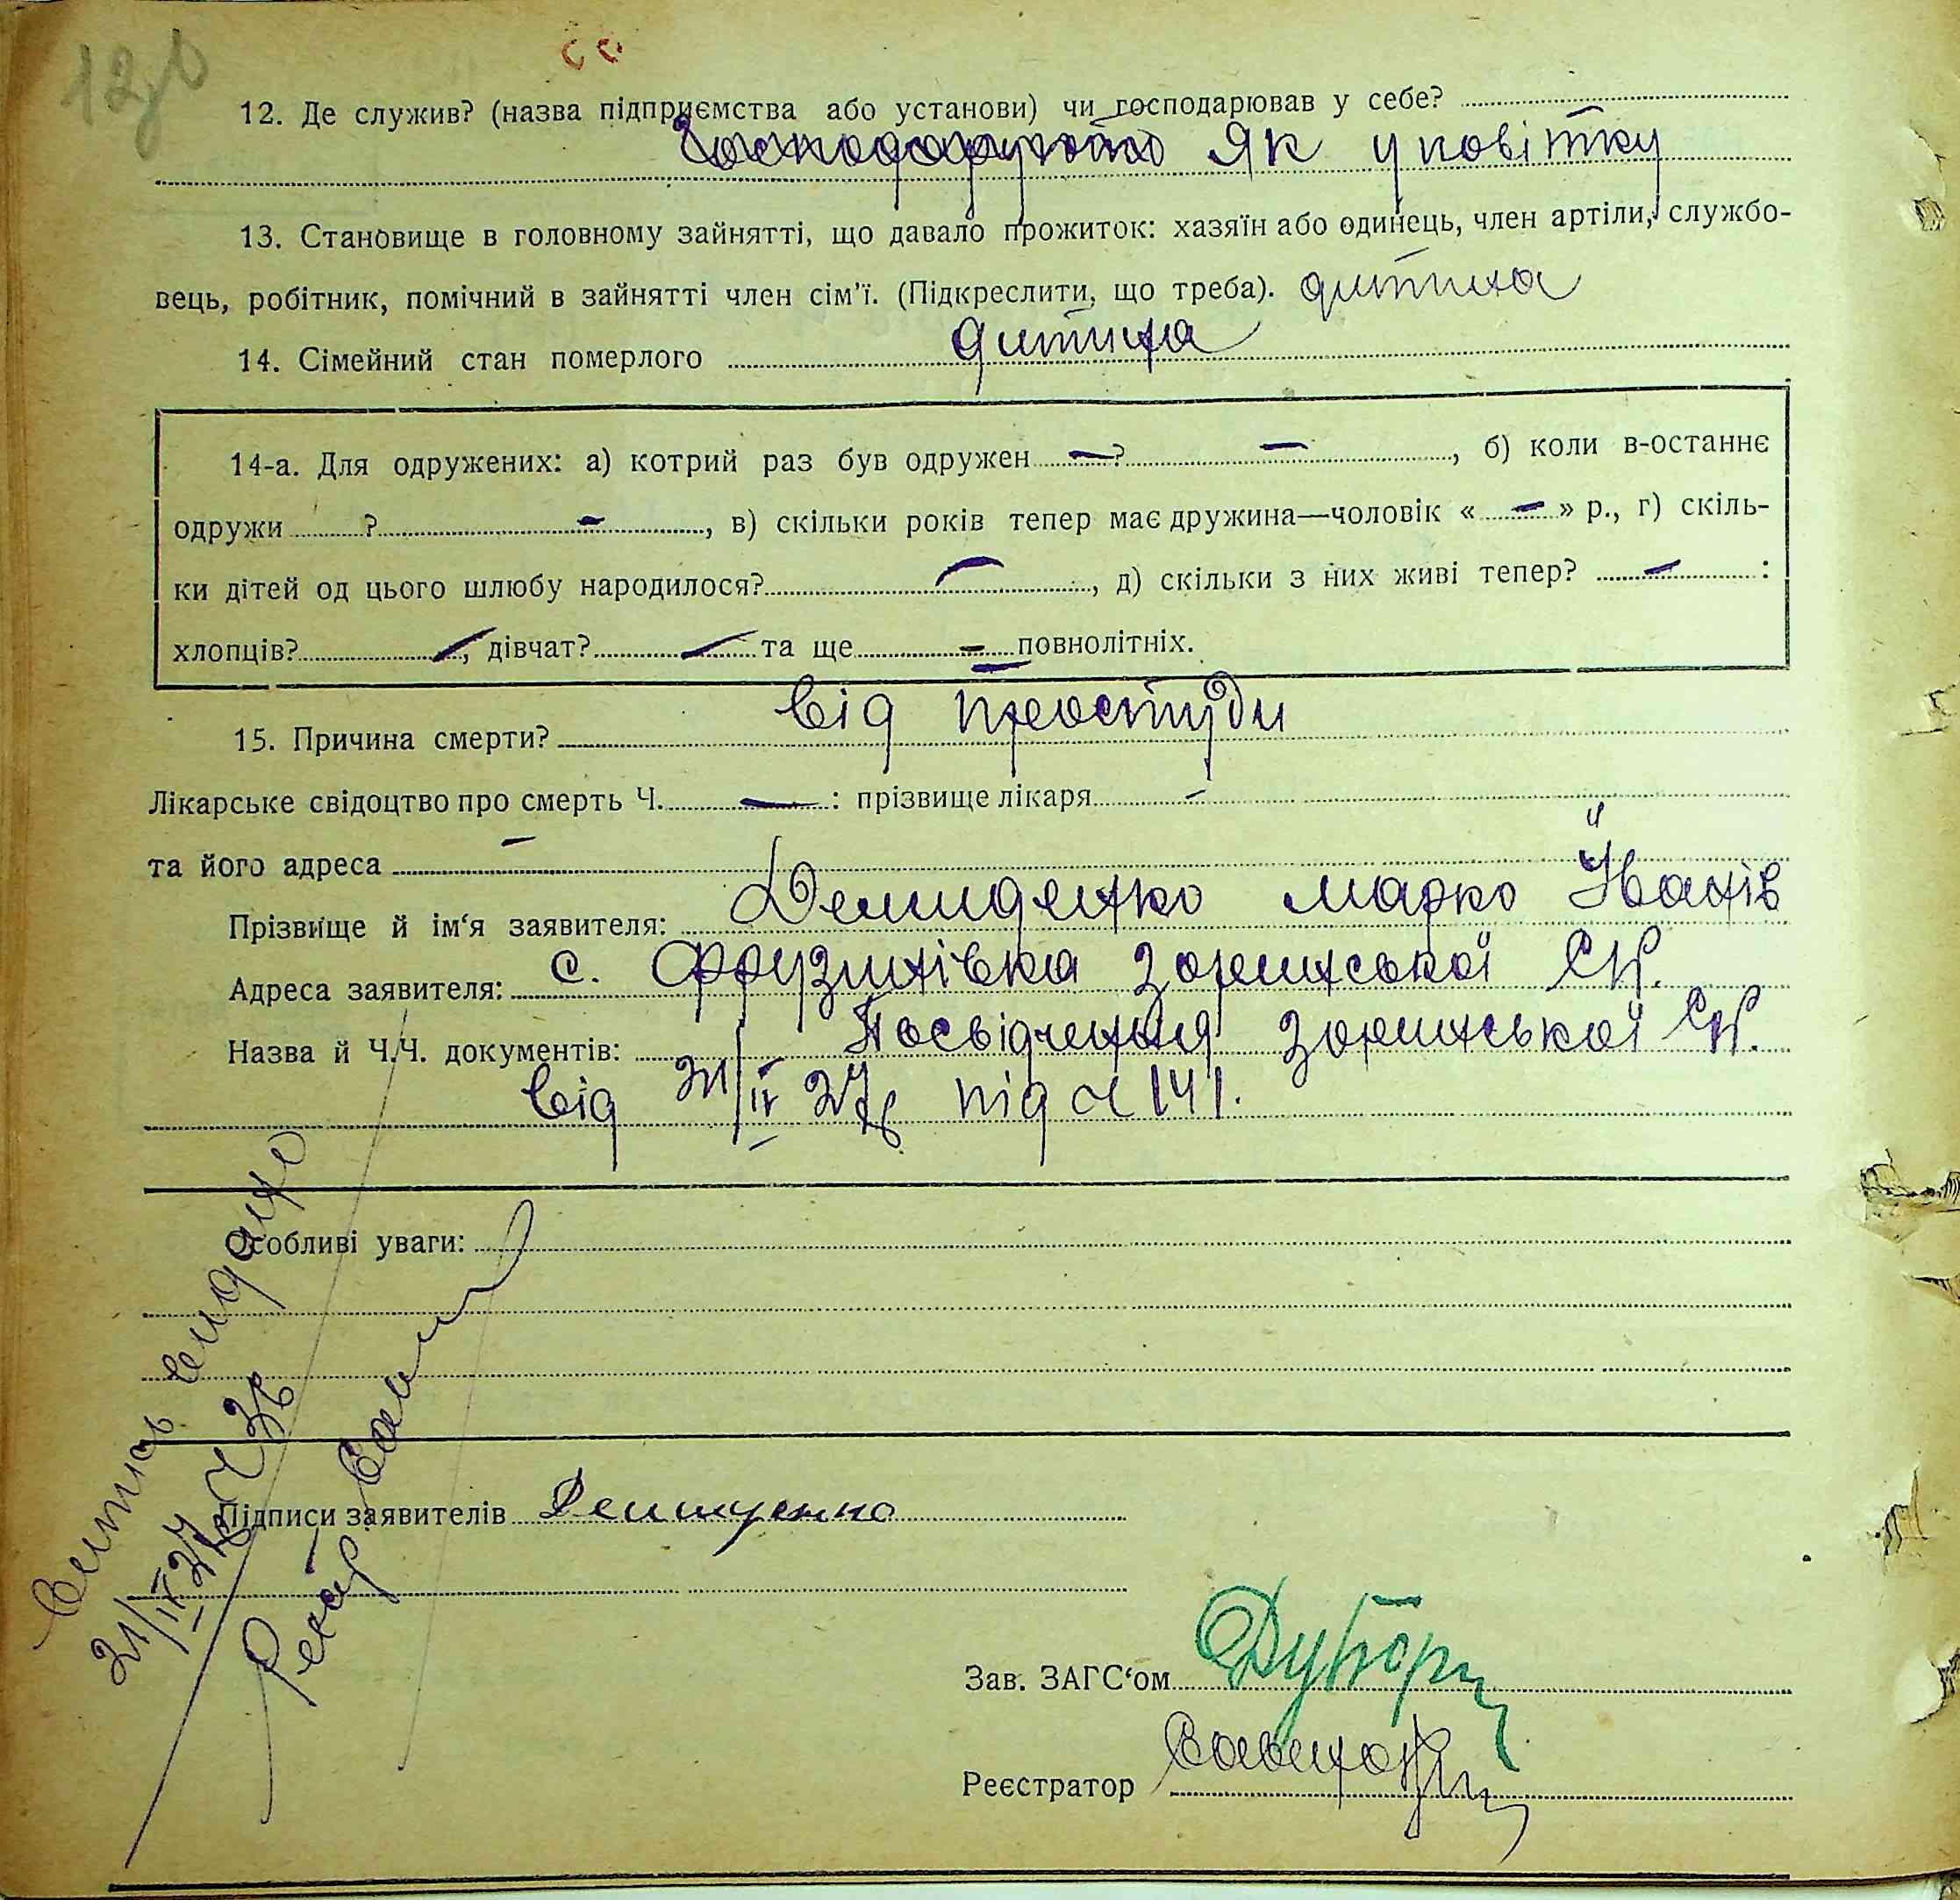 12 зв
12. Де служив? (назва підприємства або установи) чи господарював у себе?
Як у повітку
13. Становище в головному зайнятті, що давало прожиток: хазяїн або одинець, член артіли, службо-
вець, робітник, помічний в зайнятті член сім'ї. (Підкреслити, що треба). дитина
14. Сімейний стан померлого дитина
14-а. Для одружених: а) котрий раз був одружен — ? —, б) коли в-останнє
одружи ? -, в) скільки років тепер має дружина—чоловік « — » р., г) скіль-
ки дітей од цього шлюбу народилося? —, д) скільки з них живі тепер? — :
хлопців? —, дівчат? — та ще — повнолітніх.
15. Причина смерти? Від простуди
Лікарське свідоцтво про смерть Ч. — : прізвище лікаря -
та його адреса —
Прізвище й ім'я заявителя: Демиденко Марко Йванів
Адреса заявителя: с. Фрузинівка Зоринської С.Р.
Назва й Ч.Ч. документів: Посвідчення Зоринської С.Р.
від 21/IV 27р під ч 141.
Особливі уваги:
Витяг видано
21/IV 27р Ч 36
Підписи заявителів Демиденко
Зав. ЗАГС'ом
Реєстратор